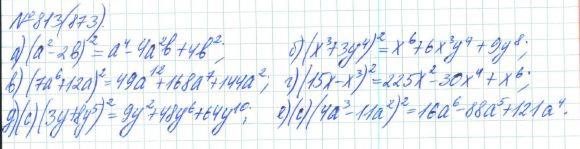 №813(873).
а) (a²-2b)² = a⁴-4a²b+4b²; б) (x³+3y⁴)² = x⁶+6x³y⁴+9y⁸;
в) (7a⁶+12a)² = 49a¹²+168a⁷+144a²; г) (15x-x³)² = 225x²-30x⁴+x⁶;
д) (с) (3y+8y⁵)² = 9y²+48y⁶+64y¹⁰; е) (с) (4a³-11a²)² = 16a⁶-88a⁵+121a⁴.